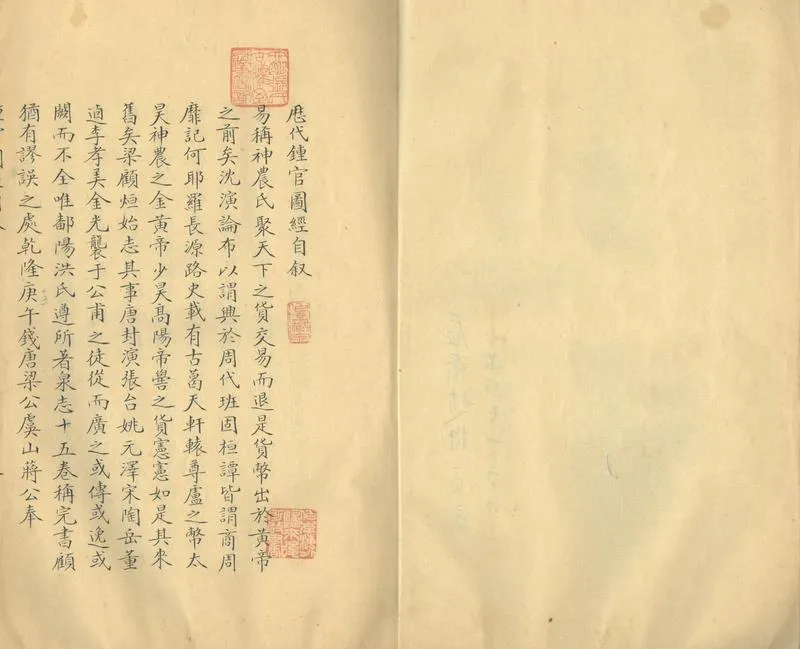 歷代鍾官圖經自叙
易稱神農氏聚天下之貨交易而退是貨幣出於黃帝
之前矣沈演論布以謂興於周代班固桓譚皆謂商周
靡記何耶羅長源路史載有古葛天軒轅尊盧之幣太
昊神農之金黃帝少昊高陽帝嚳之貨憲憲如是其來
舊矣梁顧烜始志其事唐封演張台姚元澤宋陶岳董
逌李孝美金光襲于公甫之徒從而廣之或傳或逸或
闕而不全唯鄱陽洪氏遵所著泉志十五卷稱完書顧
猶有謬誤之處乾隆庚午錢唐梁公虞山蔣公奉